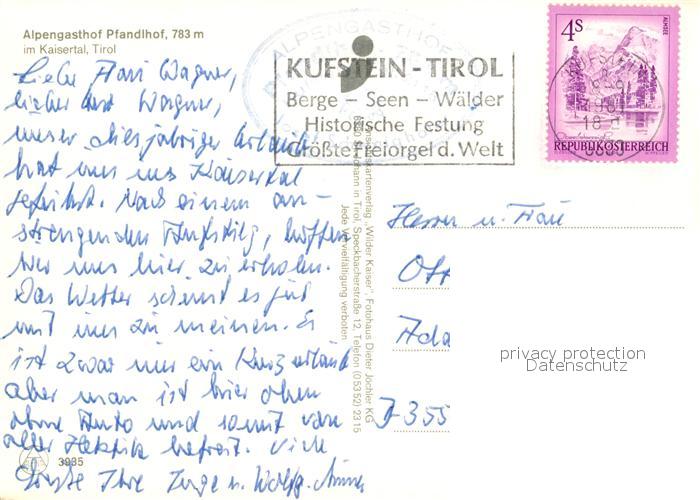 Alpengasthof Pfandlhof, 783 m
im Kaisertal, Tirol
Liebe Frau Wagner,
lieber Herr Wagner,
unser diesjähriger Urlaub
hat uns ins Kaisertal
geführt. Nach einem an-
strengenden Aufstieg, hoffen
wir uns hier zu erholen.
Das Wetter scheint es gut
mit uns zu meinen. Es
ist zwar nur ein Kurzurlaub
aber man ist hier oben
ohne Auto und somit von
aller Hektik befreit. Viele
Grüße Ihre Inge u. Wolfg.
3935
ALPENGASTHOF
KUFSTEIN - TIROL
Berge - Seen - Wälder
Historische Festung
Größte Freiorgel d. Welt
4s
ALMSEE
REPUBLIK ÖSTERREICH
Ansichtskartenverlag „Wilder Kaiser", Fotohaus Dieter Jöchler KG
6380 St. Johann in Tirol, Speckbacherstraße 12, Telefon (05352) 2315
Jede Vervielfältigung verboten
Herrn u. Frau
Ott
Ada
D-355
privacy protection
Datenschutz